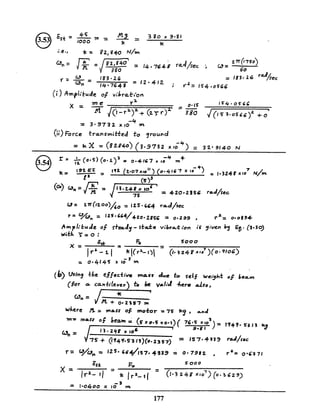 3.53 δst = 45/1000 m = Mg/k = 380 × 9.81/k
i.e., k = 82,840 N/m
ωn = √(k/M) = √(82,840/380) = 14.7648 rad/sec ; ω = 2π(1750)/60 = 183.26 rad/sec
r = ω/ωn = 183.26/14.7648 = 12.412 ; r² = 154.0566
(i) Amplitude of vibration
X = (me/M) r²/√((1-r²)² + (2ζr)²) = (0.15/380) 154.0566/√((153.0566)² + 0)
= 3.9732 × 10⁻⁴ m
(ii) Force transmitted to ground
= k X = (82840)(3.9732 × 10⁻⁴) = 32.9140 N
3.54 I = 1/12 (0.5)(0.1)³ = 0.4167 × 10⁻⁴ m⁴
k = 192 E I/l³ = 192 (2.07×10¹¹)(0.4167 × 10⁻⁴)/(5)³ = 1.3248 × 10⁷ N/m
(a) ωn = √(k/M) = √(13.248 × 10⁶/75) = 420.2856 rad/sec
ω = 2π(1200)/60 = 125.664 rad/sec
r = ω/ωn = 125.664/420.2856 = 0.299 , r² = 0.0894
Amplitude of steady-state vibration is given by Eq. (3.80)
with ζ = 0 :
X = δst/|r² - 1| = F₀/(k|(r²-1)|) = 5000/((1.3248 × 10⁷)(0.9106))
= 0.4145 × 10⁻³ m
(b) Using the effective mass due to self weight of beam
(for a cantilever) to be valid here also,
ωn = √(k/(M + 0.2357 m))
where M = mass of motor = 75 kg , and
m = mass of beam = (5 × 0.5 × 0.1)(76.5 × 10³/9.81) = 1949.5413 kg
ωn = √(13.248 × 10⁶/(75 + (1949.5413)(0.2357))) = 157.4339 rad/sec
r = ω/ωn = 125.664/157.4339 = 0.7982 , r² = 0.6371
X = δst/|r² - 1| = F₀/(k|r² - 1|) = 5000/((1.3248 × 10⁷)(0.3629))
= 1.0400 × 10⁻³ m
177